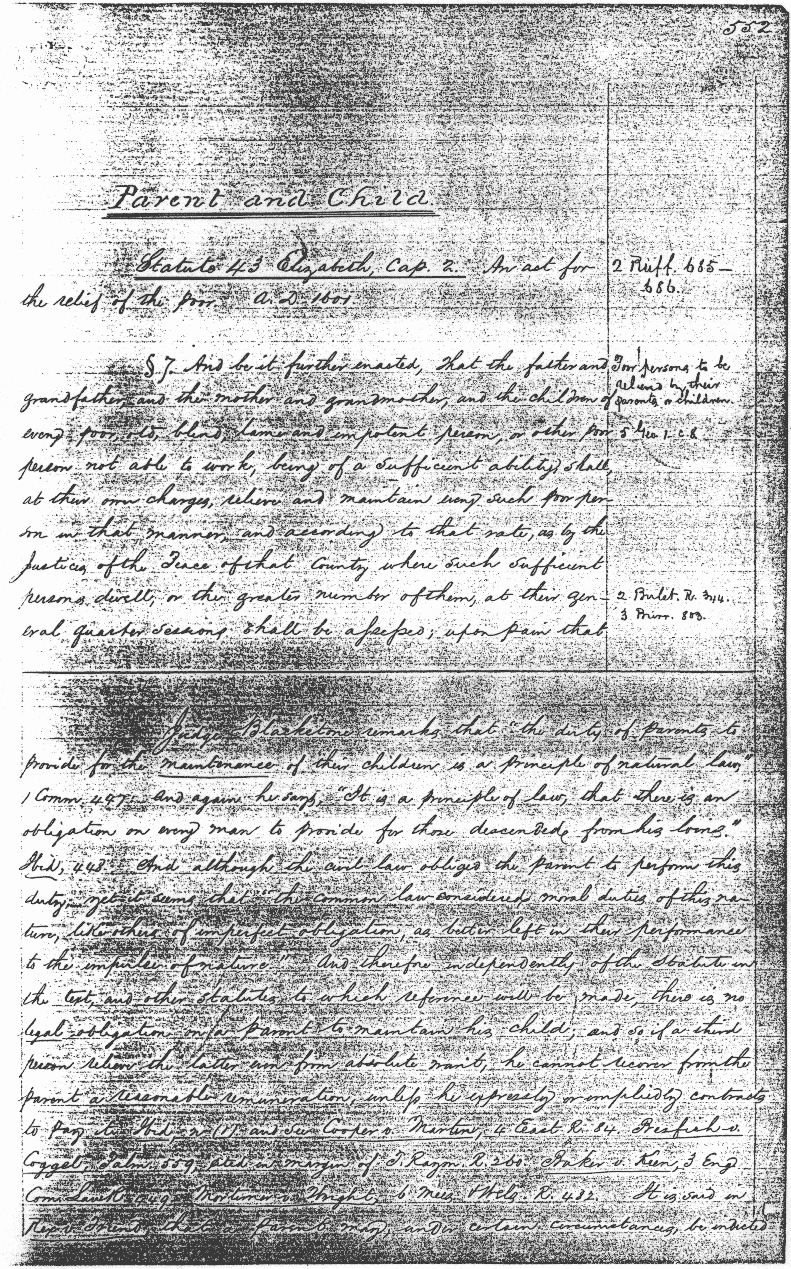 552
Parent and Child.
Statute 43 Elizabeth, Cap. 2. An act for
the relief of the poor. A. D. 1601
2 Ruff. 685-
686.
§ 7. And be it further enacted, That the father and
grandfather, and the mother and grandmother, and the children of
every poor, old, blind, lame and impotent person, or other poor
person not able to work, being of a sufficient ability, shall,
at their own charges, relieve and maintain every such poor per-
son in that manner, and according to that rate, as by the
Justices of the Peace of that County where such sufficient
persons dwell, or the greater number of them, at their gen-
eral quarter sessions shall be assessed; upon pain that
Poor persons to be
relieved by their
parents or children.
5 Geo. 1. c. 8.
2 Bulst. R. 344.
3 Burr. 803.
Judge Blackstone remarks that "the duty of parents to
provide for the maintenance of their children is a principle of natural law,"
1 Comm. 447. And again he says, "It is a principle of law, that there is an
obligation on every man to provide for those descended from his loins."
Ibid, 448. And although the civil law obliged the parent to perform this
duty, yet it seems that "the common law considered moral duties of this na-
ture, like others of imperfect obligation, as better left in their performance
to the impulse of nature." And therefore independently of the Statute in
the text, and other statutes, to which reference will be made, there is no
legal obligation on a parent to maintain his child; and so if a third
person relieve the latter even from absolute want, he cannot recover from the
parent a reasonable remuneration, unless he expressly or impliedly contracts
to pay it. Ibid, n. and see Cooper v. Martin, 4 East R. 84
Palm. 559, cited in margin of T. Raym. R. 260. Baker v. Keen, 3 Eng.
Com. Law R. 449. Mortimer v. Wright, 6 Mees. & Wels. R. 482. It is said in
Rex v. Friend, that a parent may, under certain circumstances, be indicted